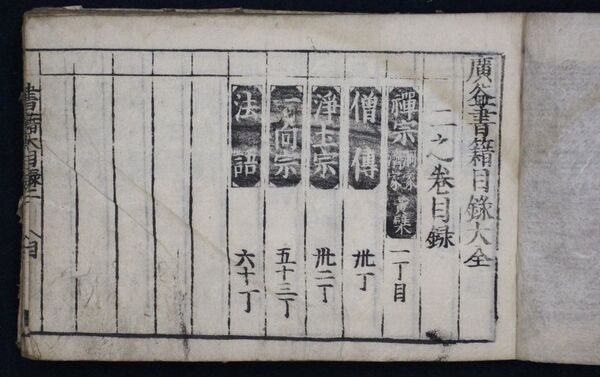 廣益書籍目錄大全
二之卷目録
禪宗 洞家 濟家 黄檗 一丁目
僧傳 卅丁
淨土宗 卅二丁
一向宗 五十三丁
法語 六十丁
書籍大目録二